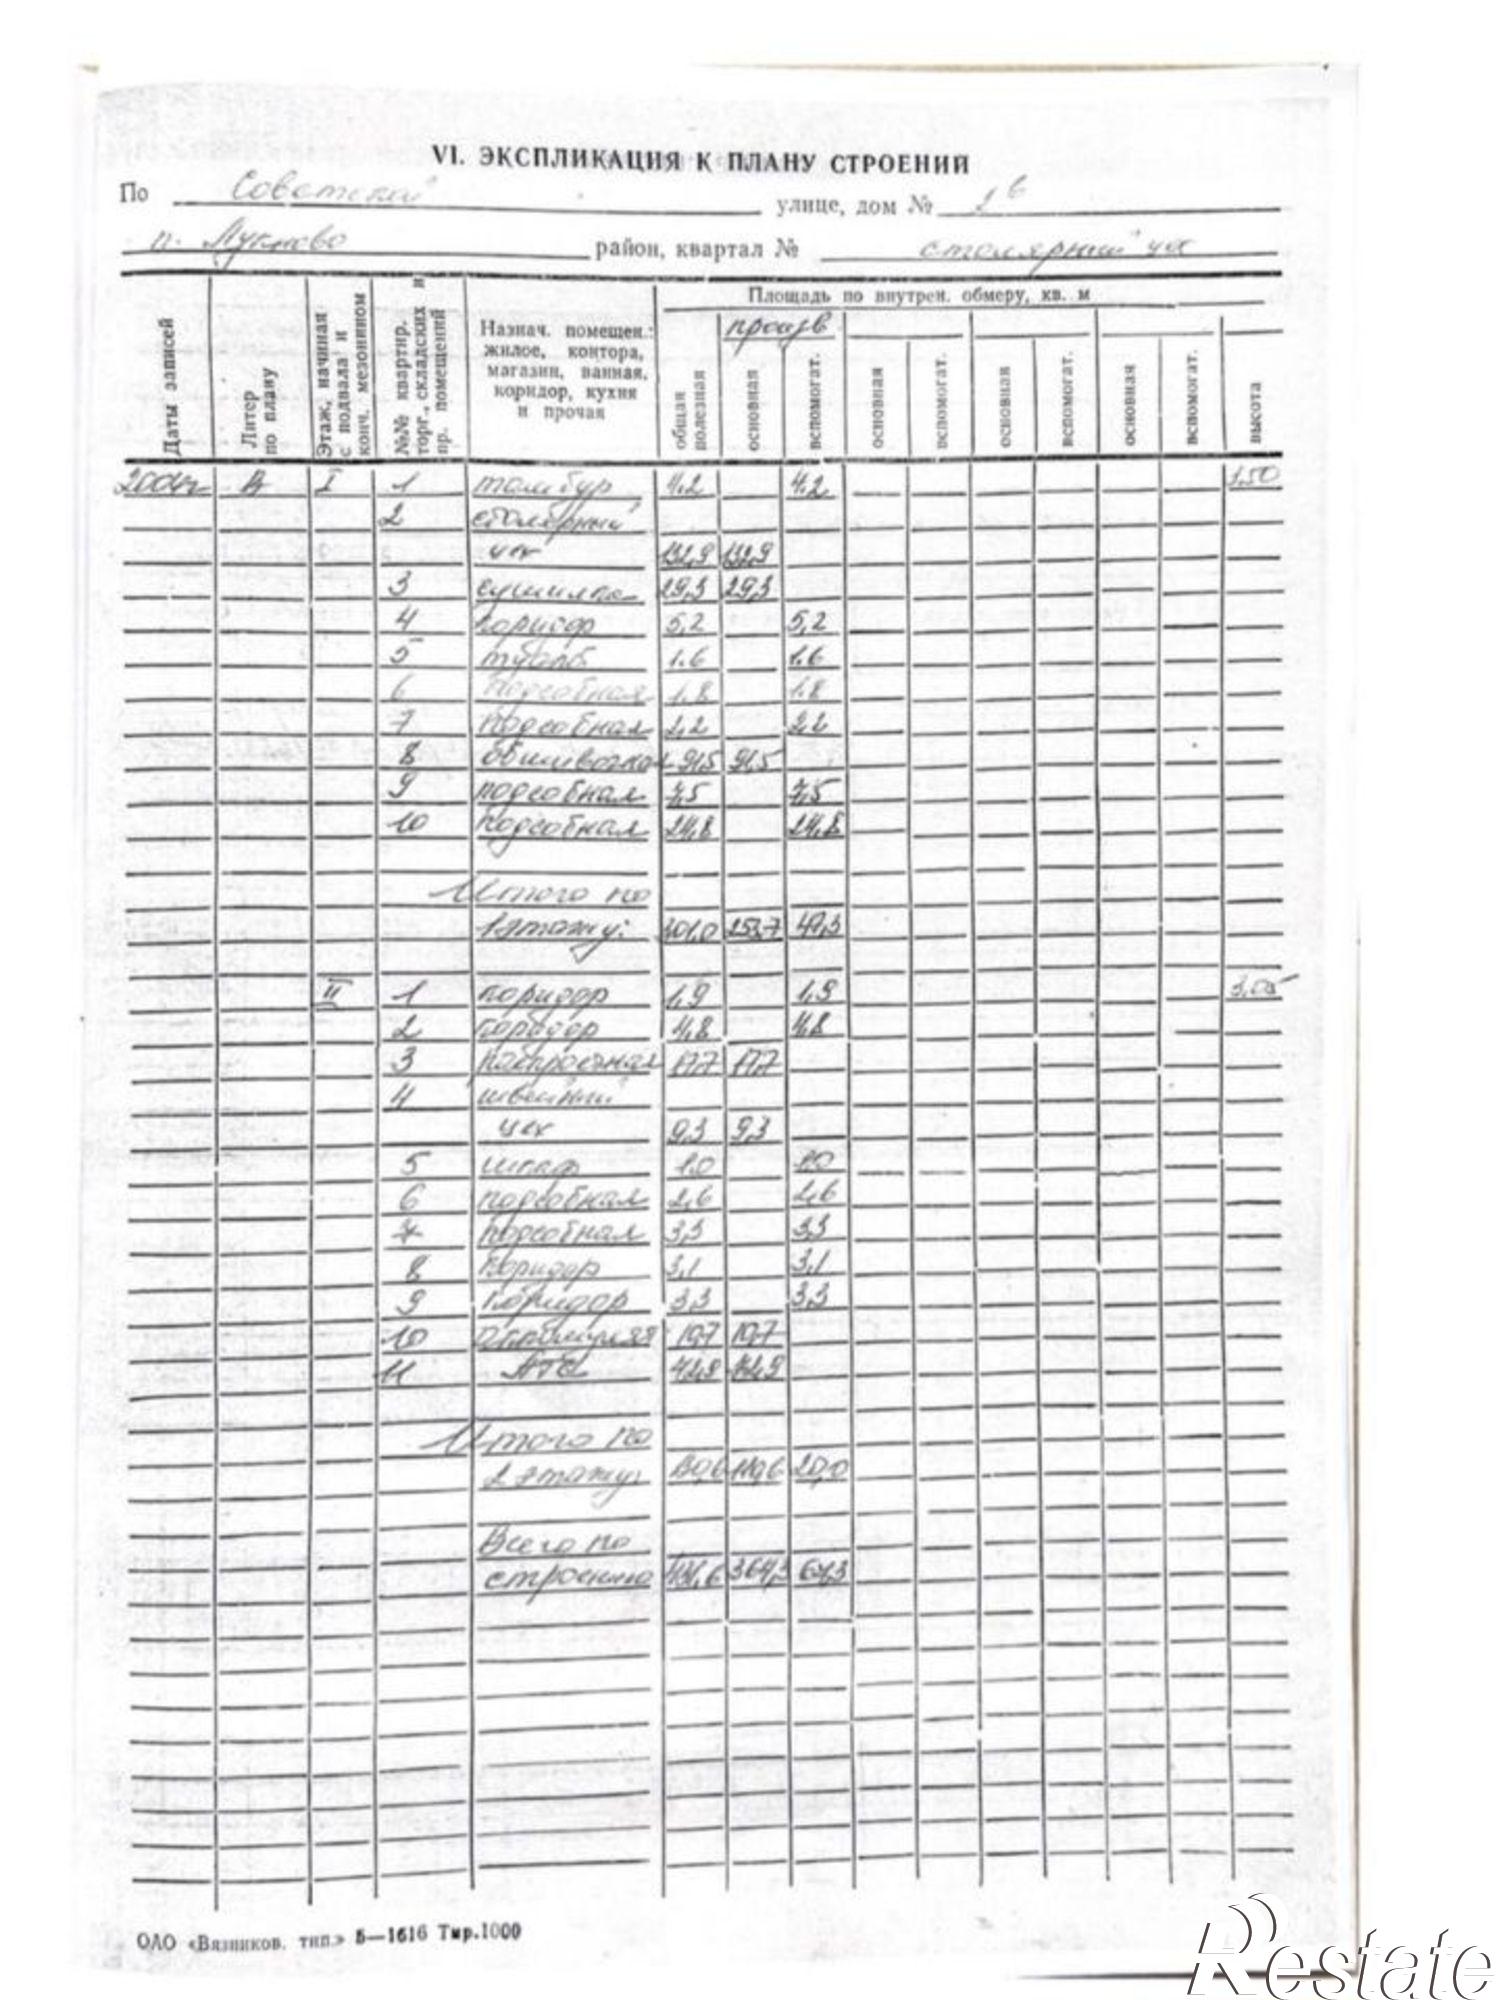 VI. ЭКСПЛИКАЦИЯ К ПЛАНУ СТРОЕНИЙ
По Советской улице, дом №
п. Лукново район, квартал № столярный цех
Даты записей
Литер по плану
Этаж, начиная с подвала и конч. мезонином
№№ квартир, торг., складских и пр. помещений
Назнач. помещен.: жилое, контора, магазин, ванная, коридор, кухня и прочая
Площадь по внутрен. обмеру, кв. м
произв.
общая полезная
основная
вспомогат.
основная
вспомогат.
основная
вспомогат.
основная
вспомогат.
высота
I 1 тамбур 4,2 4,2
2 столярный
цех 132,9 132,9
3 сушилка 29,3 29,3
4 коридор 5,2 5,2
5 туалет 1.6 1.6
6 подсобная 1.8 1.8
7 подсобная 2,2 2,2
8 91,5 91,5
9 подсобная 7,5 7,5
10 подсобная 24,8 24,8
Итого по
1 этажу: 301,0 253,7
II 1 коридор 1,9 1,9 3,05
2 коридор 4,8 4,8
3 17,7 17,7
4 швейный
цех 9,3 9,3
5 шкаф 1.0 1.0
6 подсобная 2,6 2,6
7 подсобная 3,3 3,3
8 коридор 3,1 3,1
9 коридор 3,3 3,3
10
11 АТС
Итого по
2 этажу: 20,0
Всего по
строению 364,3
ОАО «Вязников. тип.» Б—1616 Тир.1000
Restate